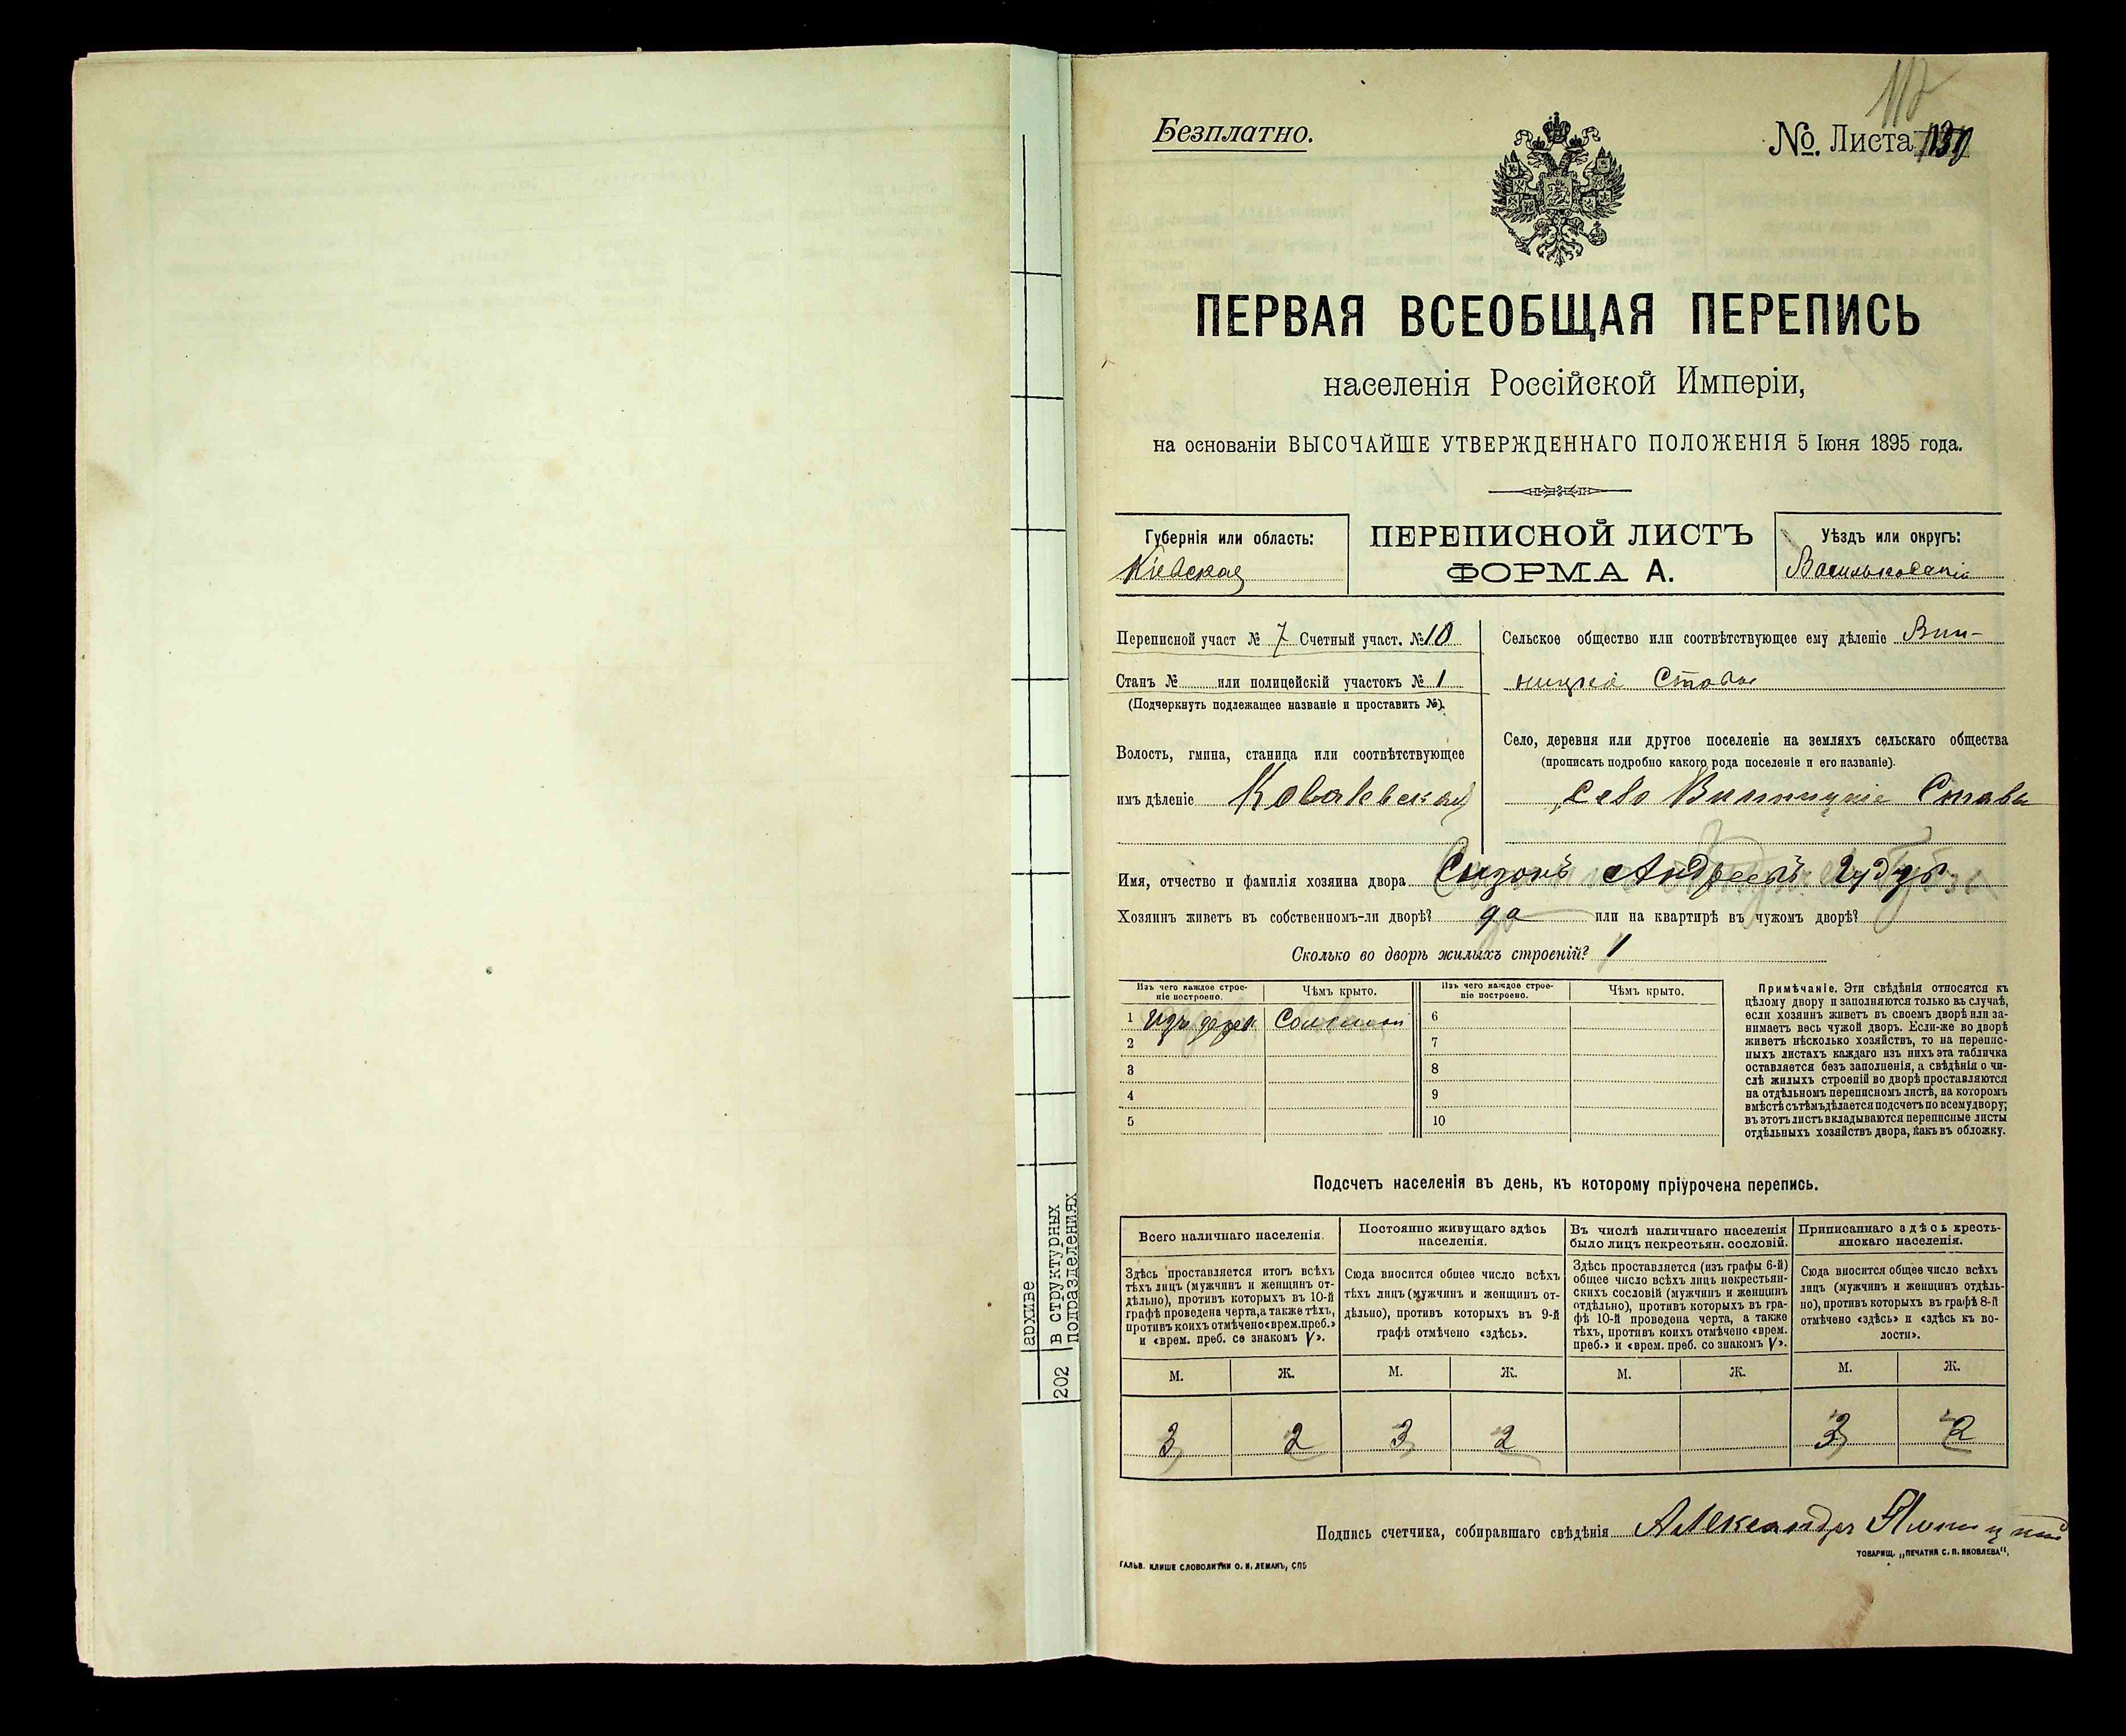 112
Безплатно.
№. Листа 139
ПЕРВАЯ ВСЕОБЩАЯ ПЕРЕПИСЬ
населенія Россійской Имперіи,
на основаніи ВЫСОЧАЙШЕ УТВЕРЖДЕННАГО ПОЛОЖЕНІЯ 5 Іюня 1895 года.
Губернія или область:
Кіевская
ПЕРЕПИСНОЙ ЛИСТЪ
ФОРМА А.
Уѣздъ или округъ:
Васильковскій
Переписной участ № 7 Счетный участ. № 10
Станъ № или полицейскій участокъ № 1
(Подчеркнуть подлежащее названіе и проставить №).
Волость, гмина, станица или соотвѣтствующее
имъ дѣленіе Ковалевская
Сельское общество или соотвѣтствующее ему дѣленіе Вин-
ницкіе Ставы
Село, деревня или другое поселеніе на земляхъ сельскаго общества
(прописать подробно какого рода поселеніе и его названіе).
село Винницкіе Ставы
Имя, отчество и фамилія хозяина двора Сызонъ Андреевъ
Хозяинъ живетъ въ собственномъ-ли дворѣ? да или на квартирѣ въ чужомъ дворѣ?
Сколько во дворѣ жилыхъ строеній? 1
Изъ чего каждое строе-
ніе построено.
Чѣмъ крыто.
Изъ чего каждое строе-
ніе построено.
Чѣмъ крыто.
1 Изъ дерев. Соломой 6
2 7
3 8
4 9
5 10
Примѣчаніе. Эти свѣдѣнія относятся къ
цѣлому двору и заполняются только въ случаѣ,
если хозяинъ живетъ въ своемъ дворѣ или за-
нимаетъ весь чужой дворъ. Если-же во дворѣ
живетъ нѣсколько хозяйствъ, то на перепис-
ныхъ листахъ каждаго изъ нихъ эта табличка
оставляется безъ заполненія, а свѣдѣнія о чи-
слѣ жилыхъ строеній во дворѣ проставляются
на отдѣльномъ переписномъ листѣ, на которомъ
вмѣстѣ съ тѣмъ дѣлается подсчетъ по всему двору;
въ этотъ листъ вкладываются переписные листы
отдѣльныхъ хозяйствъ двора, какъ въ обложку.
Подсчетъ населенія въ день, къ которому пріурочена перепись.
Всего наличнаго населенія.
Здѣсь проставляется итогъ всѣхъ
тѣхъ лицъ (мужчинъ и женщинъ от-
дѣльно), противъ которыхъ въ 10-й
графѣ проведена черта, а также тѣхъ,
противъ коихъ отмѣчено «врем. преб.»
и «врем. преб. со знакомъ V».
Постоянно живущаго здѣсь
населенія.
Сюда вносится общее число всѣхъ
тѣхъ лицъ (мужчинъ и женщинъ от-
дѣльно), противъ которыхъ въ 9-й
графѣ отмѣчено «здѣсь».
Въ числѣ наличнаго населенія
было лицъ некрестьян. сословій.
Здѣсь проставляется (изъ графы 6-й)
общее число всѣхъ лицъ некрестьян-
скихъ сословій (мужчинъ и женщинъ
отдѣльно), противъ которыхъ въ гра-
фѣ 10-й проведена черта, а также
тѣхъ, противъ коихъ отмѣчено «врем.
преб.» и «врем. преб. со знакомъ V».
Приписаннаго здѣсь кресть-
янскаго населенія.
Сюда вносится общее число всѣхъ
лицъ (мужчинъ и женщинъ отдѣль-
но), противъ которыхъ въ графѣ 8-й
отмѣчено «здѣсь» и «здѣсь къ во-
лости».
М. Ж. М. Ж. М. Ж. М. Ж.
3 2 3 2 3 2
Подпись счетчика, собиравшаго свѣдѣнія Александръ
ГАЛЬВ. КЛИШЕ СЛОВОЛИТНИ О. И. ЛЕМАНЪ, СПБ
ТОВАРИЩ. „ПЕЧАТНЯ С. П. ЯКОВЛЕВА“,
архиве
202 в структурных
подразделениях